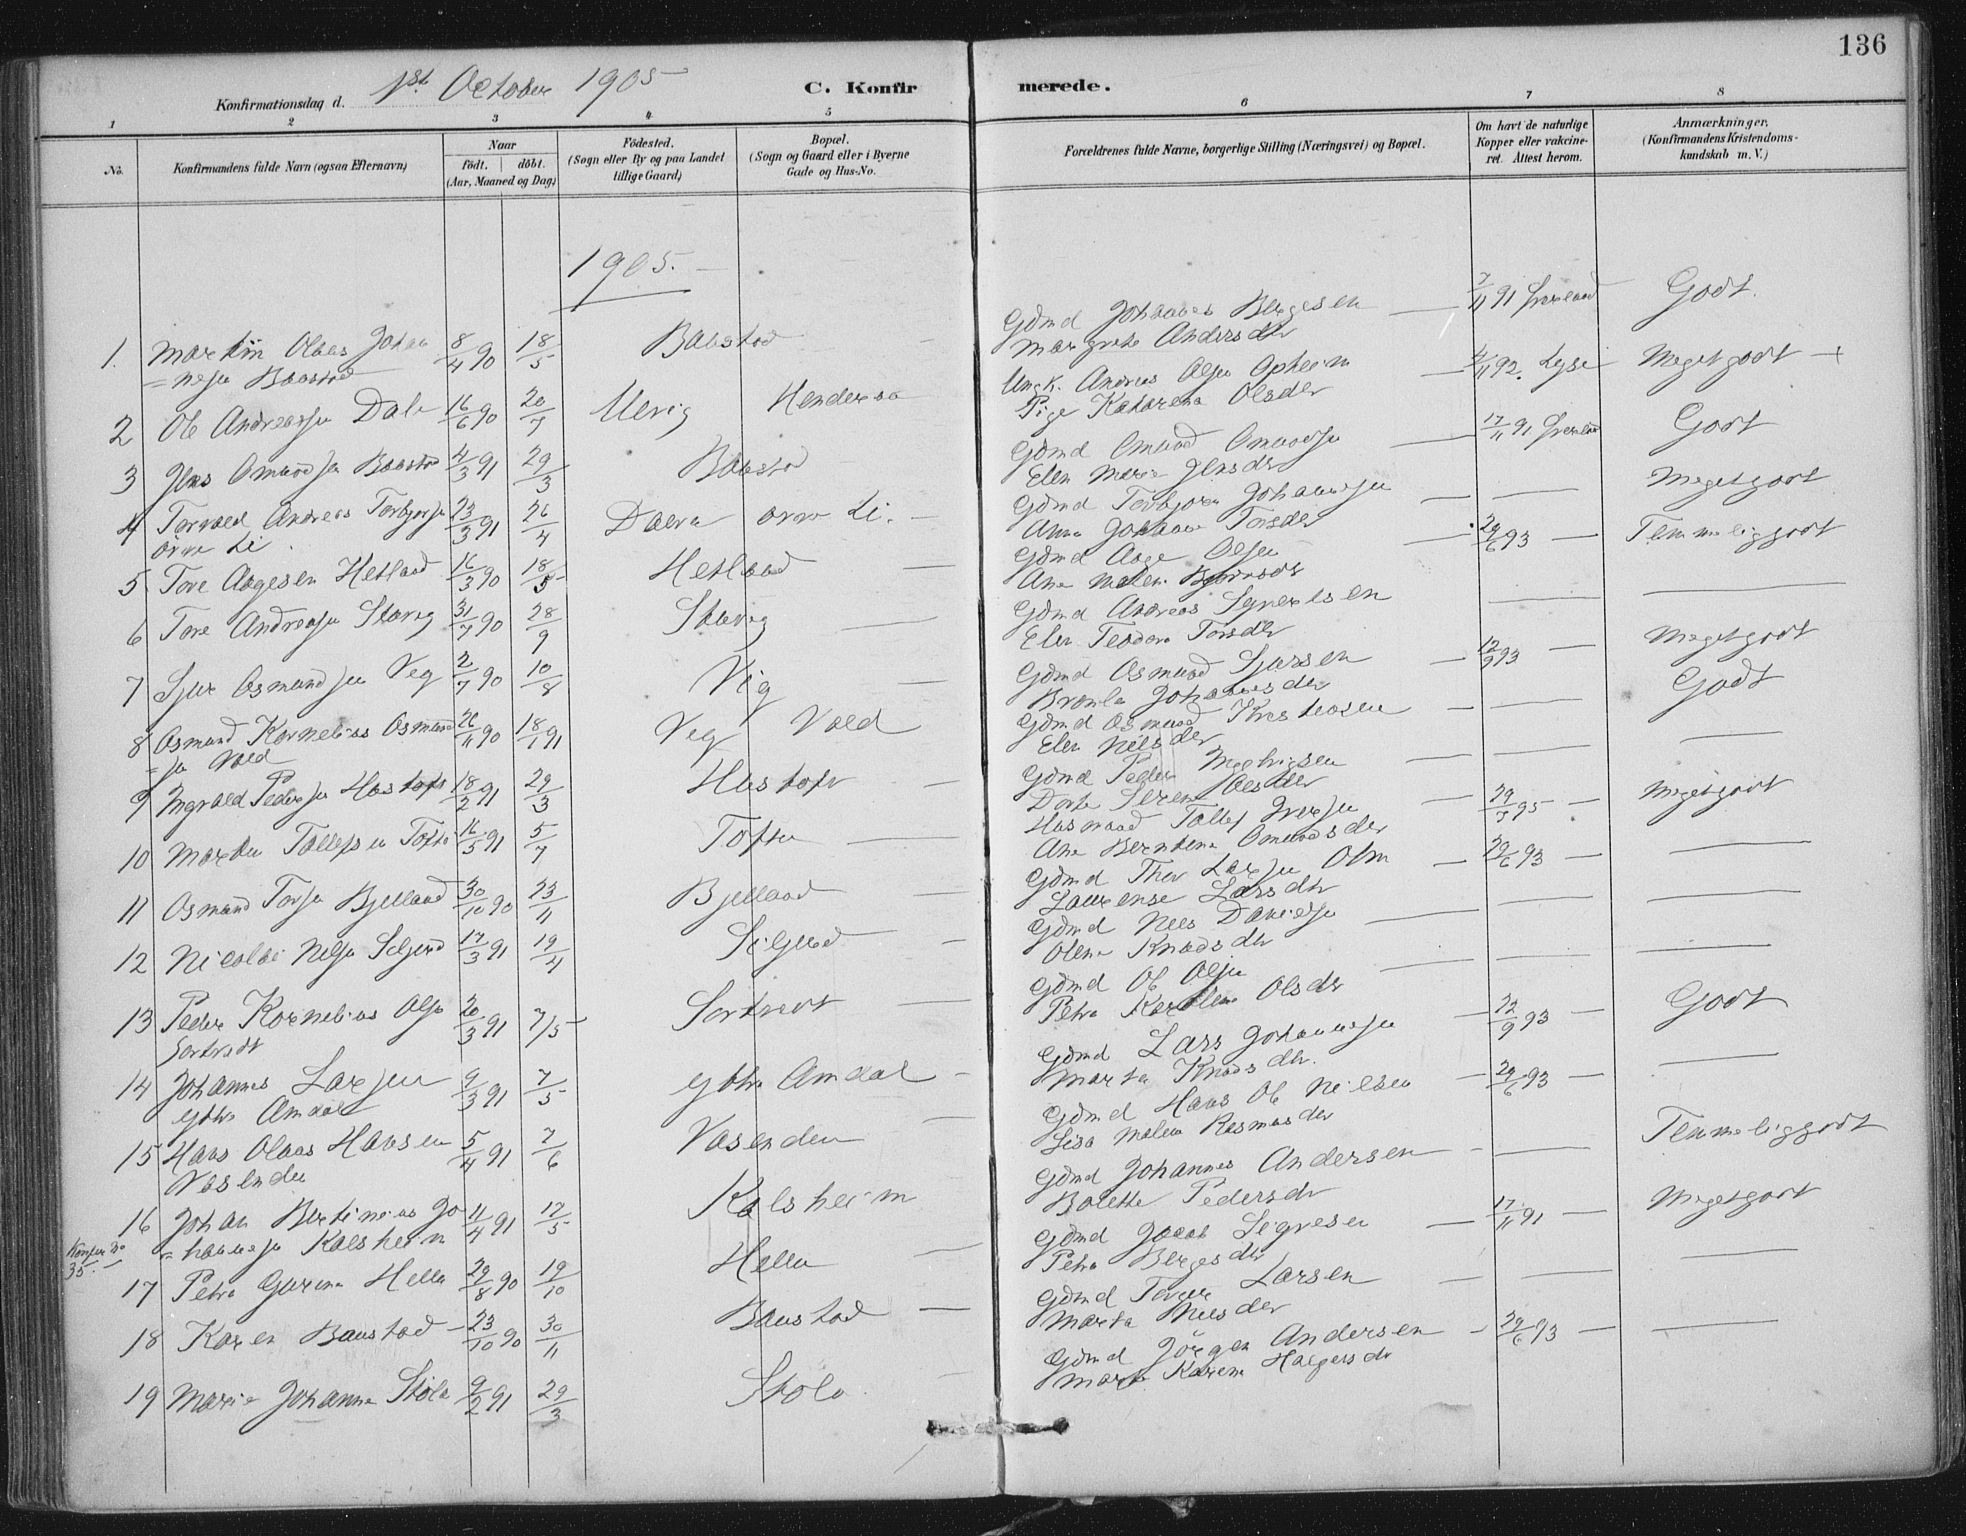 136
Konfirmationsdag d. 1st October 1905
C. Konfirmerede.
1 2 3 4 5 6 7 8
No.
Konfirmandens fulde Navn (ogsaa Efternavn)
Naar
födt. döbt.
(Aar, Maaned og Dag)
Födested.
(Sogn eller By og paa Landet
tillige Gaard)
Bopæl.
(Sogn og Gaard eller i Byerne
Gade og Hus-No.
Forældrenes fulde Navne, borgerlige Stilling (Næringsvei) og Bopæl.
Om havt de naturlige
Kopper eller vakcineret
Attest herom.
Anmærkninger.
(Konfirmandens Kristendomskundskab
m. V.)
1905.
1. Martin Olaus Johan 8/4 90 18/5 Baustad Gdmd Johannes Bergesen 7/11 91 Godt.
=nesen Baustad Margrete Andersdtr
2 Ole Andreassen Dale 16/6 90 20/7 Ulvig Ungk. Andreas Olsen Opheim 4/11 92. Lyse Megetgodt +
Pige Katarena Olsdtr
3 Jens Omundsen Baustad 4/3 91 29/3 Baustad Gdmd Omund Omundsen 17/11 91 Godt
Elen Marie Jensdtr
4 Torvald Andreas Torbjörnsen 23/3 91 26/4 övre Li. Gdmd Torbjörn Johannesen Megetgodt
övre Li Anna Johanne Torsdtr
5 Tore Aagesen Hetland 16/3 90 18/5 Hetland Gdmd Aage Olsen 29/6 93 Temmeliggodt
Ane Malene Björnsdtr
6 Tore Andreassen 31/7 90 28/9 Gdmd Andreas
Elen Teodora Torsdtr
7 Sjur Osmundsen Vig 2/7 90 10/8 Vig Gdmd Osmund Sjursen 12/9 93 Megetgodt
Johannesdtr
8 Osmund Kornelius Osmund 26/11 90 18/1 91 Vig Vold Gdmd Osmund Godt
=sen Vold Elen Nilsdtr
9 Ingvald Pedersen Hustoft 18/2 91 29/3 Hustoft Gdmd Peder
Dorte Serene Olsdtr
10 Martin Tollefsen Tofte 16/5 91 5/7 Tofte Husmand Tollef 29/7 95 Megetgodt
Ane Berntine Omundsdtr
11 Osmund Torsen Bjelland 30/10 90 23/11 Bjelland Gdmd Thor Larsen 29/6 93
Laurense Larsdtr
12 Nicolai Nilsen 17/3 91 19/4 Gdmd Nils Danielsen
Olene Knudsdtr
13 Peder Kornelius Olsen 20/3 91 7/5 Gdmd Ole Olsen
Petra Karoline Olsdtr
14 Johannes Larsen 9/3 91 7/5 ytre Amdal Gdmd Lars Johannesen 22/9 93 Godt
ytre Amdal Marta Knudsdtr.
15 Hans Olaus Hansen 5/4 91 7/6 Vasenden Gdmd Hans Ole Nilsen 29/6 93
Vasenden Lisa Malene Rasmusdtr
16 Johan Bertinius Jo 11/4 91 17/5 Kalsheim Gdmd Johannes Andersen Temmeliggodt
=hannesen Kalsheim Bolette Pedersdtr
35.
17 Petra Gurine Hella 29/8 90 19/10 Hella Gdmd Jacob 17/11 91 Megetgodt
Petra Bergesdtr
18 Karen Baustad 23/10 90 30/11 Baustad Gdmd Larsen
Marta Nilsdtr
19 Marie Johanne Skole 9/2 91 29/3 Skole Gdmd Jörgen Andersen 29/6 93
Karine